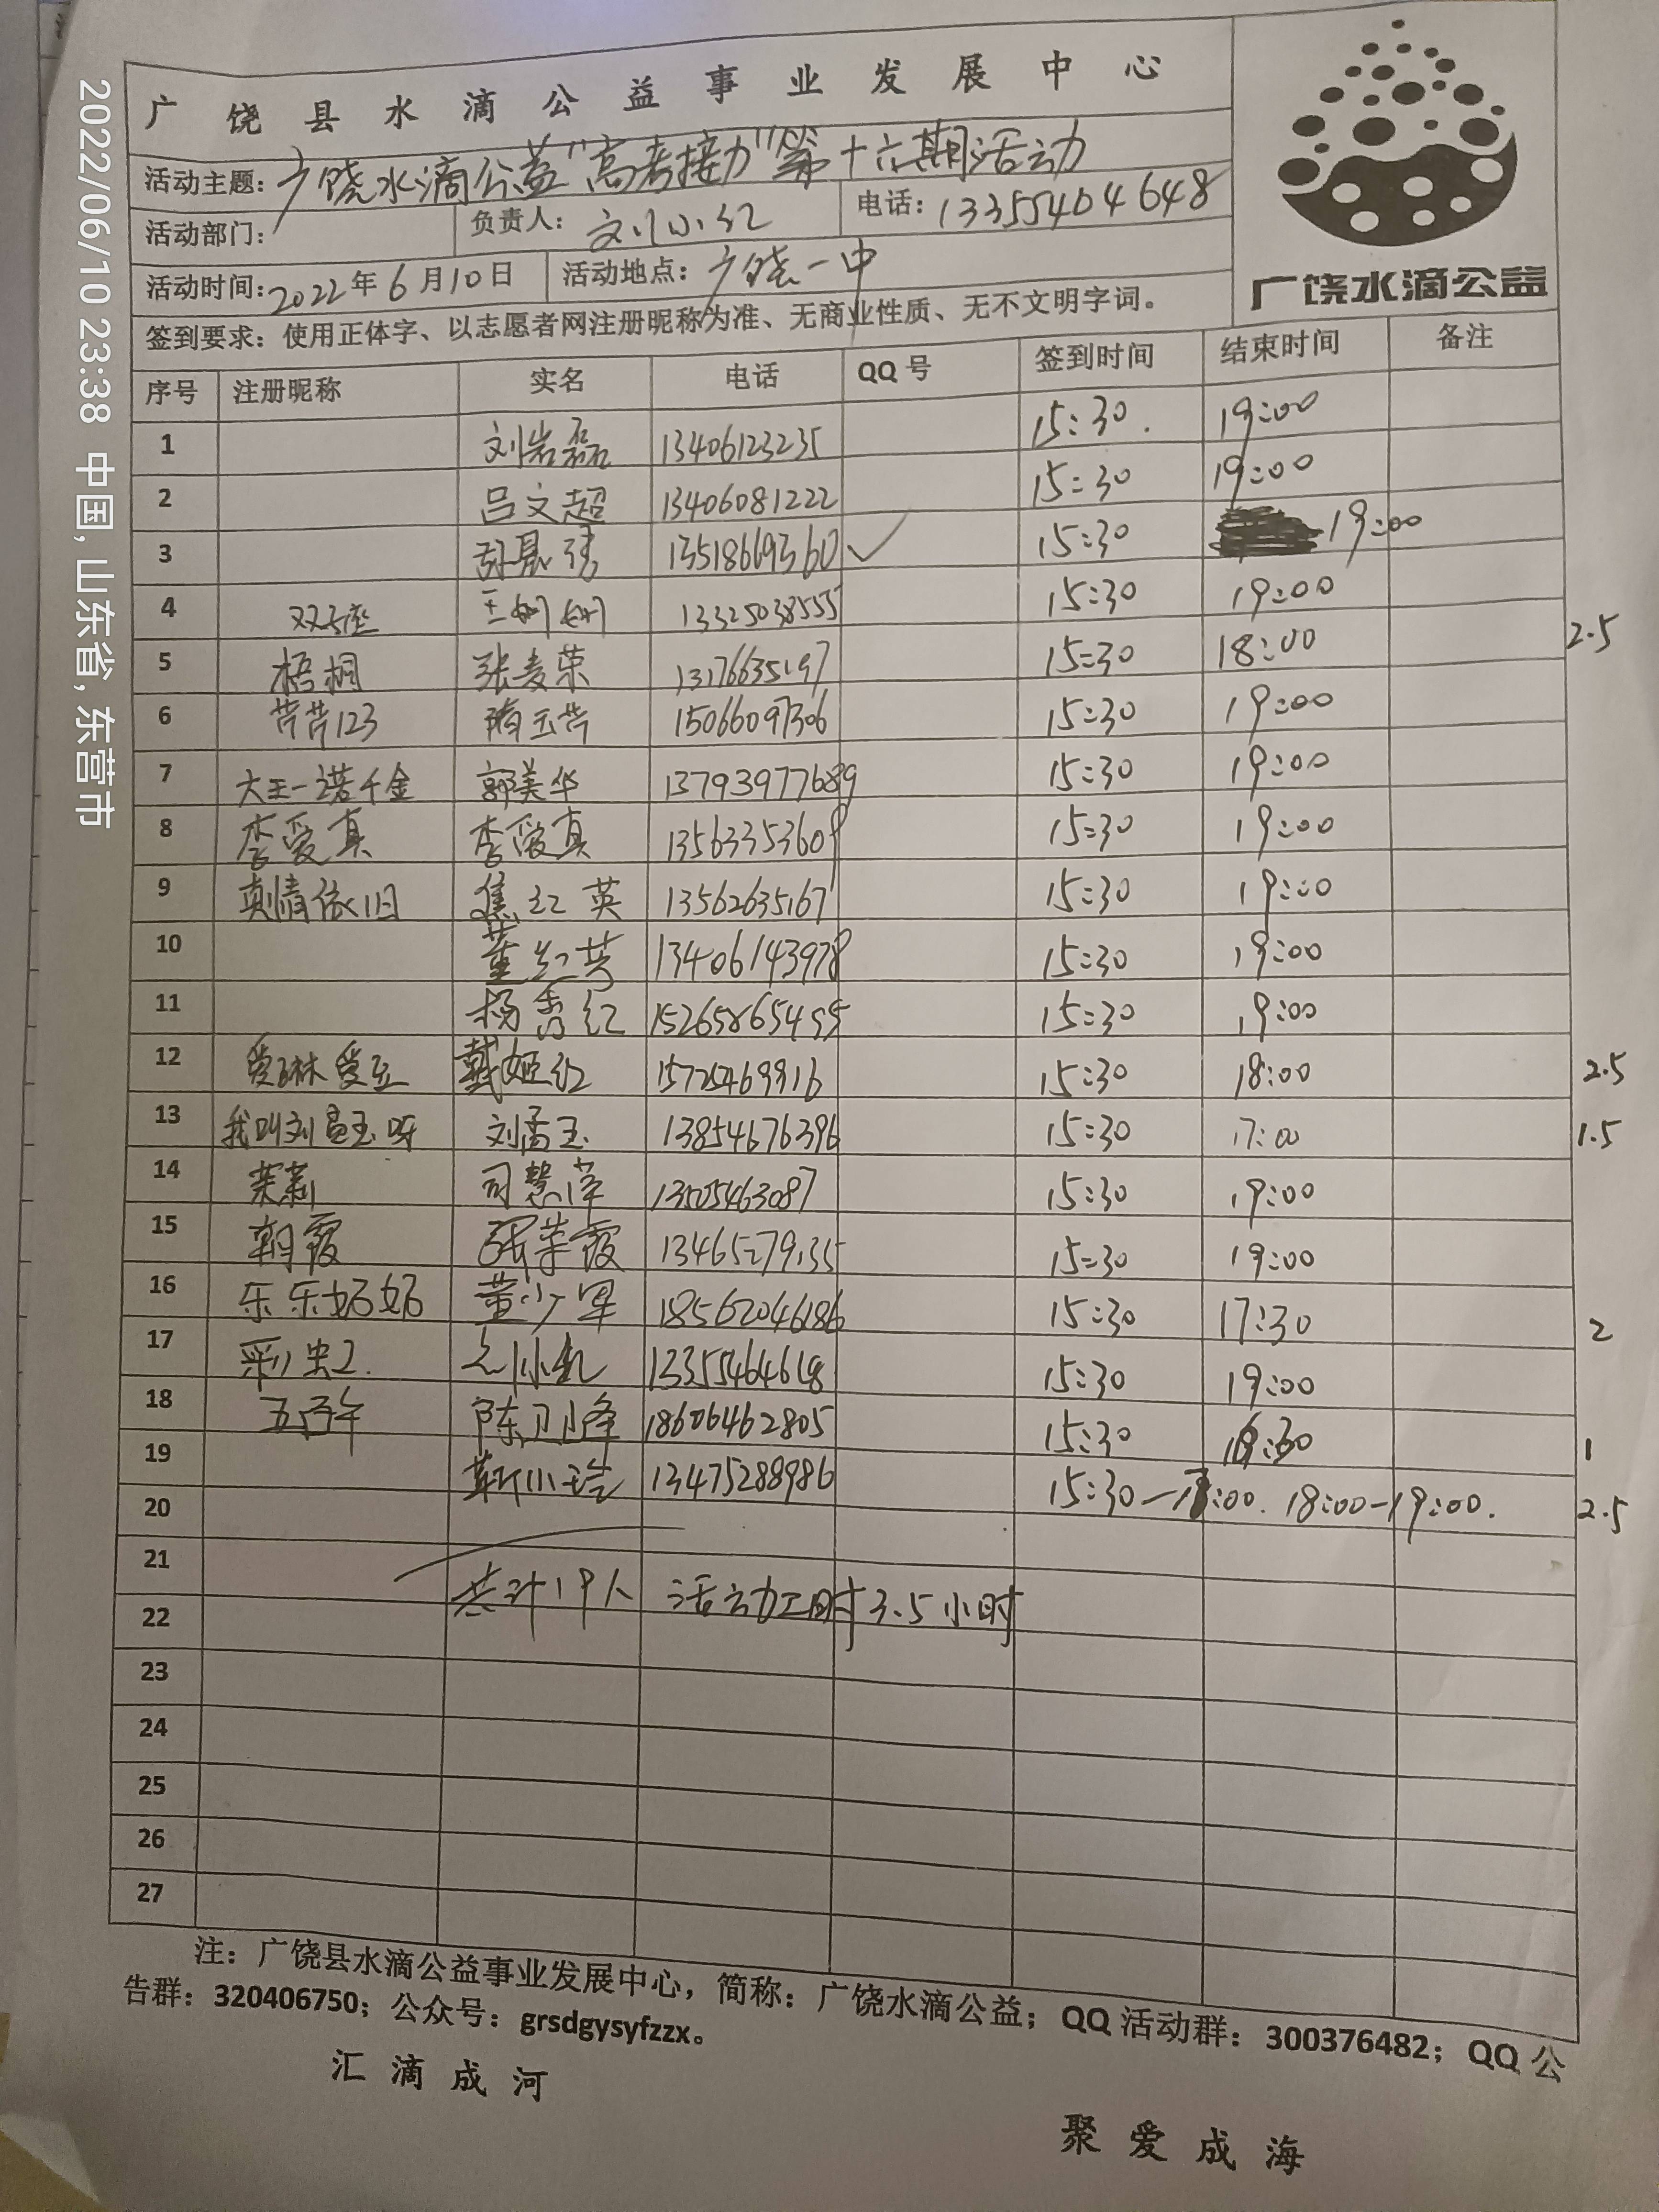 2022/06/10 23:38 中国, 山东省, 东营市
广饶县水滴公益事业发展中心
活动主题: 广饶水滴公益"高考接力"第十六期活动
活动部门: 负责人: 刘小红 电话: 13355404648
活动时间: 2022年6月10日 活动地点: 广饶一中
广饶水滴公益
签到要求: 使用正体字、以志愿者网注册昵称为准、无商业性质、无不文明字词。
序号 注册昵称 实名 电话 QQ号 签到时间 结束时间 备注
1 刘岩磊 13406123235 15:30. 19:00
2 吕文超 13406081222 15:30 19:00
3 13518669360 15:30 19:00
4 双子座 王姗姗 13325038555 15:30 19:00
5 梧桐 张麦荣 13176635197 15:30 18:00 2.5
6 芹芹123 隋玉芹 15066097306 15:30 19:00
7 大王一诺千金 郭美华 13793977689 15:30 19:00
8 李爱真 李爱真 13563353609 15:30 19:00
9 真情依旧 焦红英 13562635167 15:30 19:00
10 董红英 13406143978 15:30 19:00
11 杨秀红 15:30 19:00
12 戴姬红 15725469916 15:30 18:00 2.5
13 我叫刘孟玉呀 刘孟玉 13854676396 15:30 17:00 1.5
14 茉莉 司慧萍 13505463087 15:30 19:00
15 朝霞 张荣霞 13465279135 15:30 19:00
16 乐乐奶奶 董少军 18562046186 15:30 17:30 2
17 15:30 19:00
18 陈卫峰 18606462805 15:30 16:30 1
19 靳小玲 13475288986 15:30—17:00. 18:00—19:00. 2.5
20
21
共计19人 活动工时3.5小时
22
23
24
25
26
27
注: 广饶县水滴公益事业发展中心, 简称: 广饶水滴公益; QQ活动群: 300376482; QQ公
告群: 320406750; 公众号: grsdgysyfzzx。
汇滴成河
聚爱成海